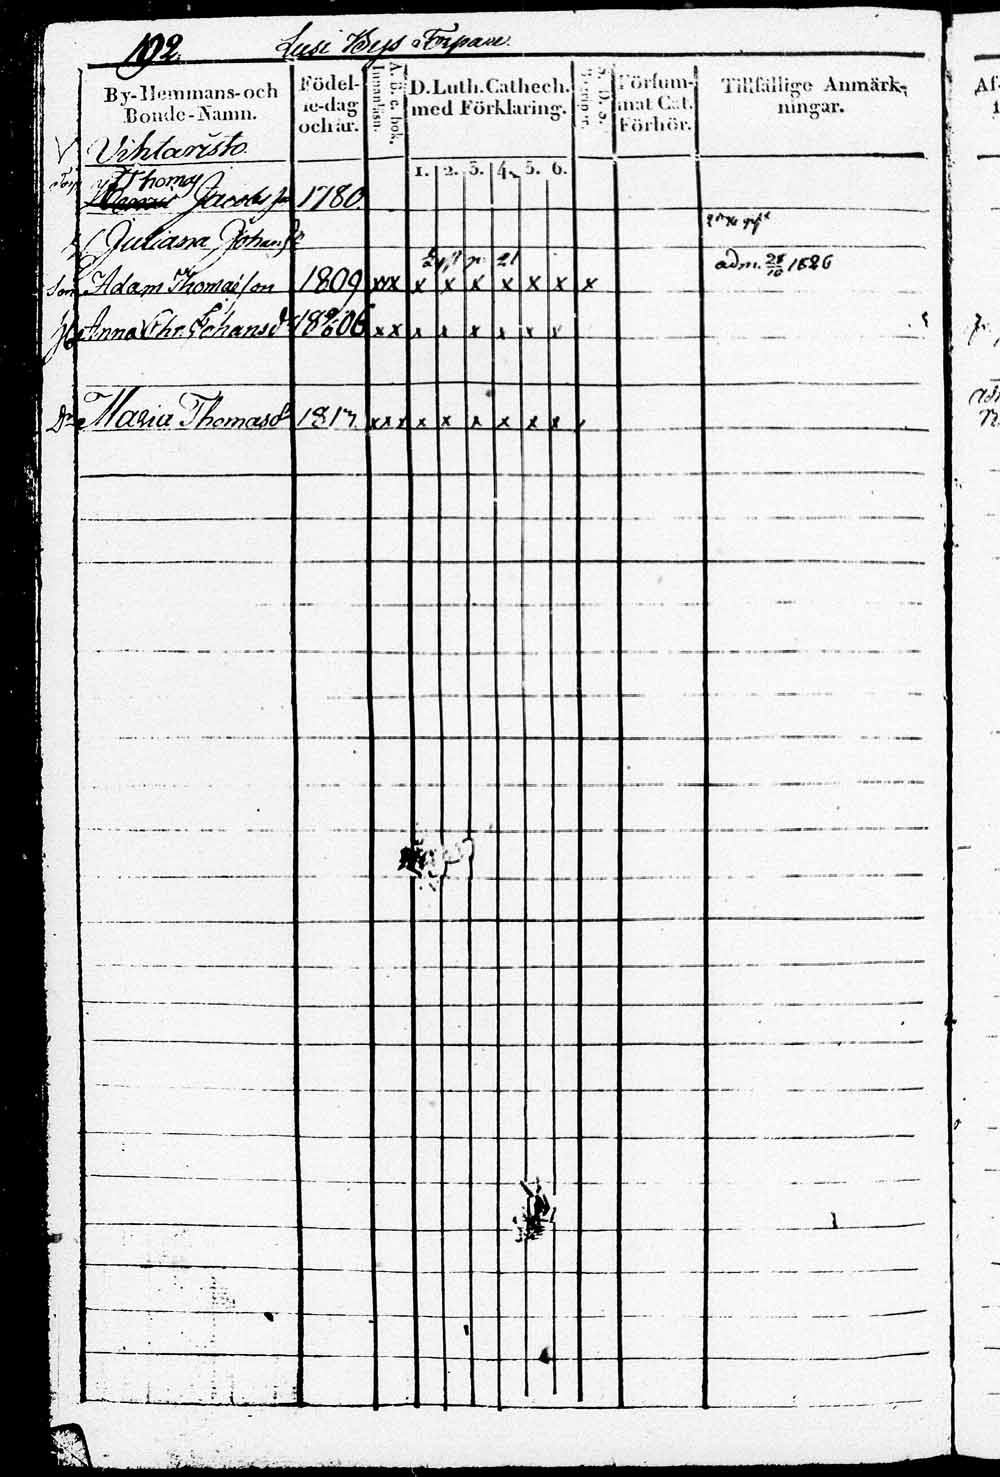 192. Lusi Bys Torpare.
By-Hemmans-och Bonde-Namn.
Födel-se-dag och år.
A.b.c. bok.
Innanläsn.
D. Luth. Cathech. med Förklaring.
1. 2. 3. 4. 5. 6.
Försum-mat Cat. Förhör.
Tillfällige Anmärk-ningar.
Vihtaristo
Torp Thomas Jacobss 1780.
Juliana Johansd
Son Adam Thomasson 1809 xx x x x x x x x adm. 28/10 1826
Anna Chr. Johansd 1806 x x x x x x x x
Dr Maria Thomasd 1817 x x x x x x x x x